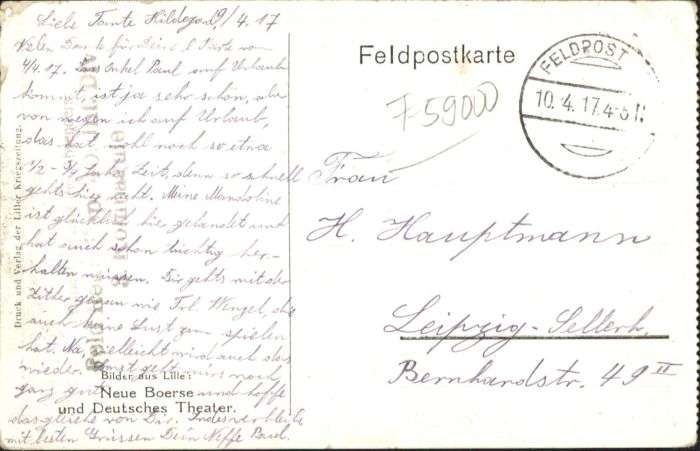 Liebe Tante Hildegard! 9/4.17
Vielen Dank für Deine l. Karte vom
4/4.17. Das Onkel Paul auf Urlaub
kommt, ist ja sehr schön, aber
von wegen ich auf Urlaub,
das hat wohl noch so etwa
1/2 - 3/4 Jahr Zeit, denn so schnell
gehts hier nicht. Meine Mandoline
ist glücklich hier gelandet und
hat auch schon tüchtig her-
halten müssen. Dir gehts mit der
Zither genau wie Frl. Wenzel, die
auch keine Lust zum spielen
hat. Na, vielleicht wird auch das
wieder. Sonst geht mirs noch
ganz gut und hoffe
dasgleiche von Dir. Indes verbleibe
mit besten Grüssen Dein Neffe Paul.
Bilder aus Lille:
Neue Boerse
und Deutsches Theater.
Druck und Verlag der Liller Kriegszeitung.
Feldpostkarte
FELDPOST
10.4.17.4-5 N.
F 59000
Frau
H. Hauptmann
Leipzig-Sellerh.
Bernhardstr. 49 II